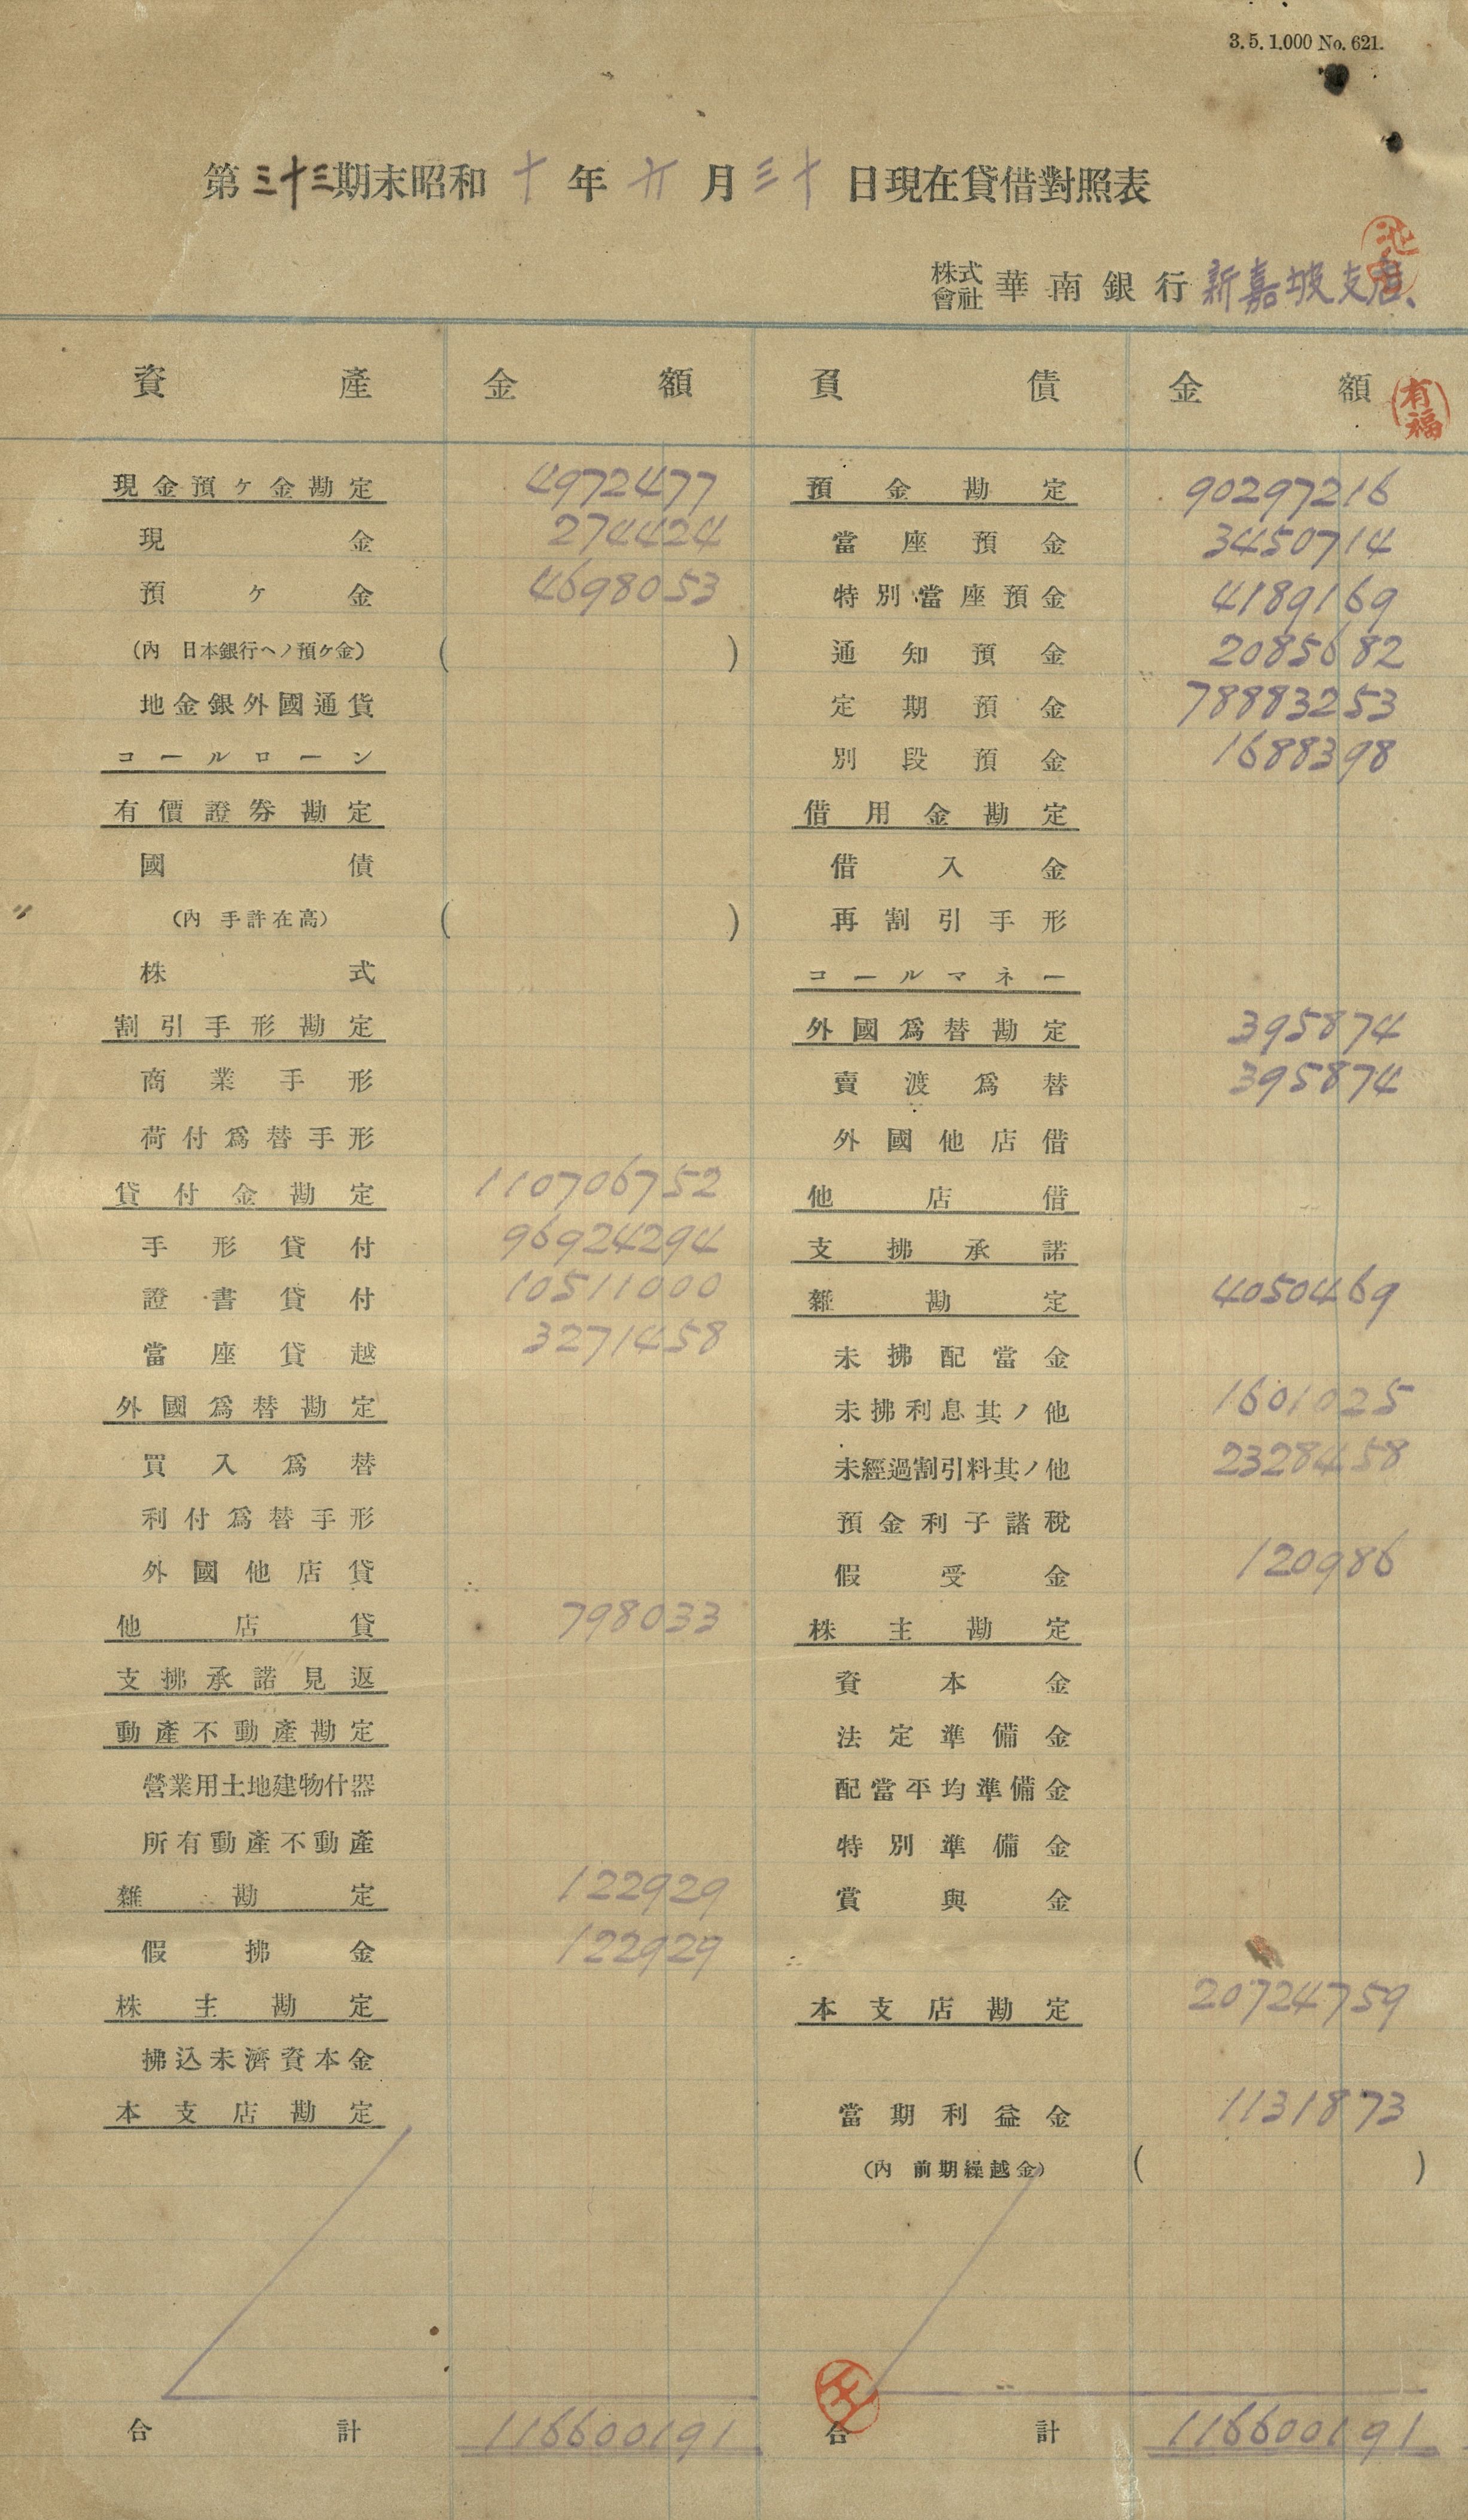 3. 5. 1.000 No. 621.
第三十三期末昭和十年六月三十日現在貸借對照表
株式會社 華南銀行 新嘉坡支店
資產 金額 負債 金額
有福
現金預ケ金勘定 4972477 預金勘定 90297216
現金 274424 當座預金 3450714
預ケ金 4698053 特別當座預金 4189169
(內 日本銀行ヘノ預ケ金) ( ) 通知預金 2085682
地金銀外國通貨 定期預金 78883253
コールローン 別段預金 1688398
有價證券勘定 借用金勘定
國債 借入金
(內 手許在高) ( ) 再割引手形
株式 コールマネー
割引手形勘定 外國爲替勘定 395874
商業手形 賣渡爲替 395874
荷付爲替手形 外國他店借
貸付金勘定 110706752 他店借
手形貸付 96924294 支拂承諾
證書貸付 10511000 雜勘定 4050469
當座貸越 3271458 未拂配當金
外國爲替勘定 未拂利息其ノ他 1601025
買入爲替 未經過割引料其ノ他 2328458
利付爲替手形 預金利子諸稅
外國他店貸 假受金 120986
他店貸 798033 株主勘定
支拂承諾見返 資本金
動產不動產勘定 法定準備金
營業用土地建物什器 配當平均準備金
所有動產不動產 特別準備金
雜勘定 122929 賞與金
假拂金 122929
株主勘定 本支店勘定 20724759
拂込未濟資本金
本支店勘定 當期利益金 1131873
(內 前期繰越金) ( )
王
合計 116600191 合計 116600191